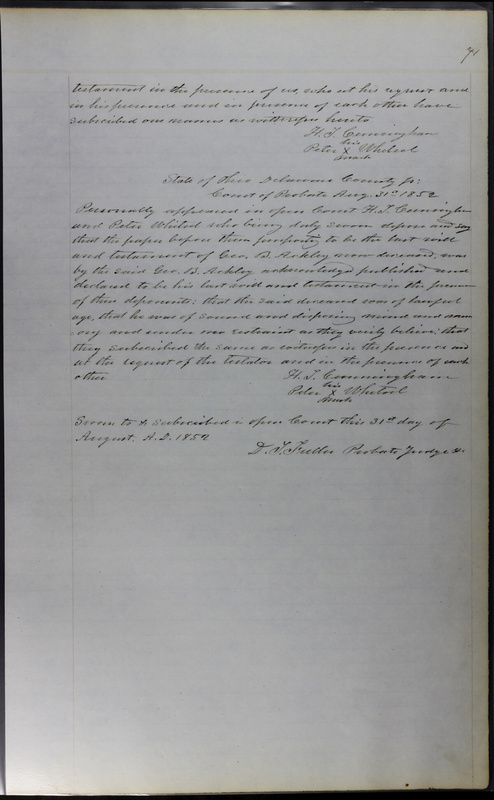 71
testament in the presence of us, who at his request and
in his presence and in presence of each other have
subscribed our names as witnesses hereto
H. T. Cunningham
his
Peter X Whitsel
mark
State of Ohio Delaware County ss:
Court of Probate Aug. 31st 1852
Personally appeared in open Court H. T. Cunningham
and Peter Whitsel who being duly sworn depose and say
that the paper before them purporting to be the last will
and testament of Geo. B. Ackley now deceased, was
by the said Geo. B. Ackley acknowledged published and
declared to be his last will and testament in the presence
of these deponents: that the said deceased was of lawful
age, that he was of sound and disposing mind and mem
ory and under no restraint as they verily believe; that
they subscribed the same as witnesses in the presence and
at the request of the testator and in the presence of each
other
H. T. Cunningham
his
Peter X Whitsel
mark
Sworn to & subscribed in open Court this 31st day of
August. A.D. 1852
D. T. Fuller Probate Judge &c